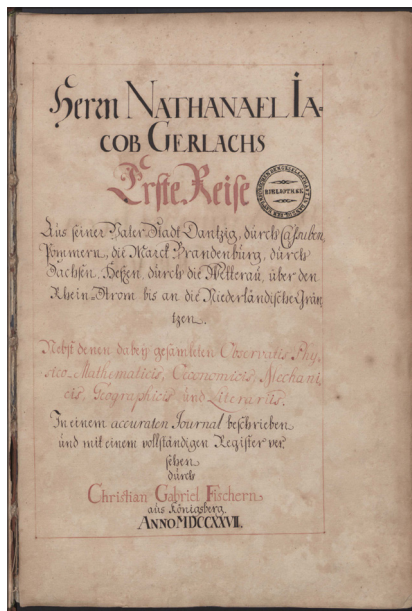 Herrn NATHANAEL JA-
COB GERLACHS
Erste Reise
Aus seiner Vater-Stadt Dantzig, durch Cassuben,
Pommern, die Marck Brandenburg, durch
Sachsen, Heßen, durch die Wetterau, über den
Rhein-Strom bis an die Niederländische Grän-
tzen.
BIBLIOTHEK
Nebst denen dabey gesamleten Observatis Phy-
sico-Mathematicis, Oeconomicis, Mechani-
cis, Geographicis und Literariis.
In einem accuraten Journal beschrieben
und mit einem vollständigen Register ver-
sehen
durch
Christian Gabriel Fischern
aus Königsberg.
ANNO MDCCXXVII.